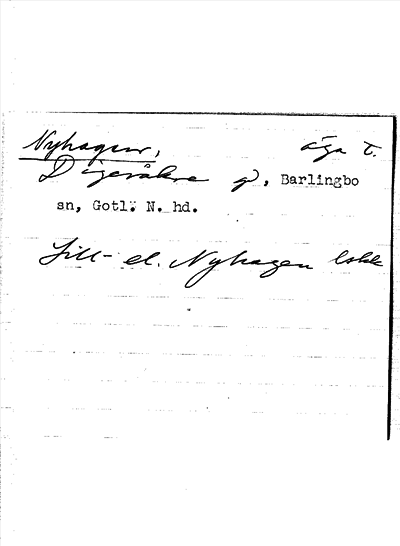 Nyhagen, äga t.
Digeråkre gd, Barlingbo
sn, Gotl. N. hd.
Lill- el. Nyhagen